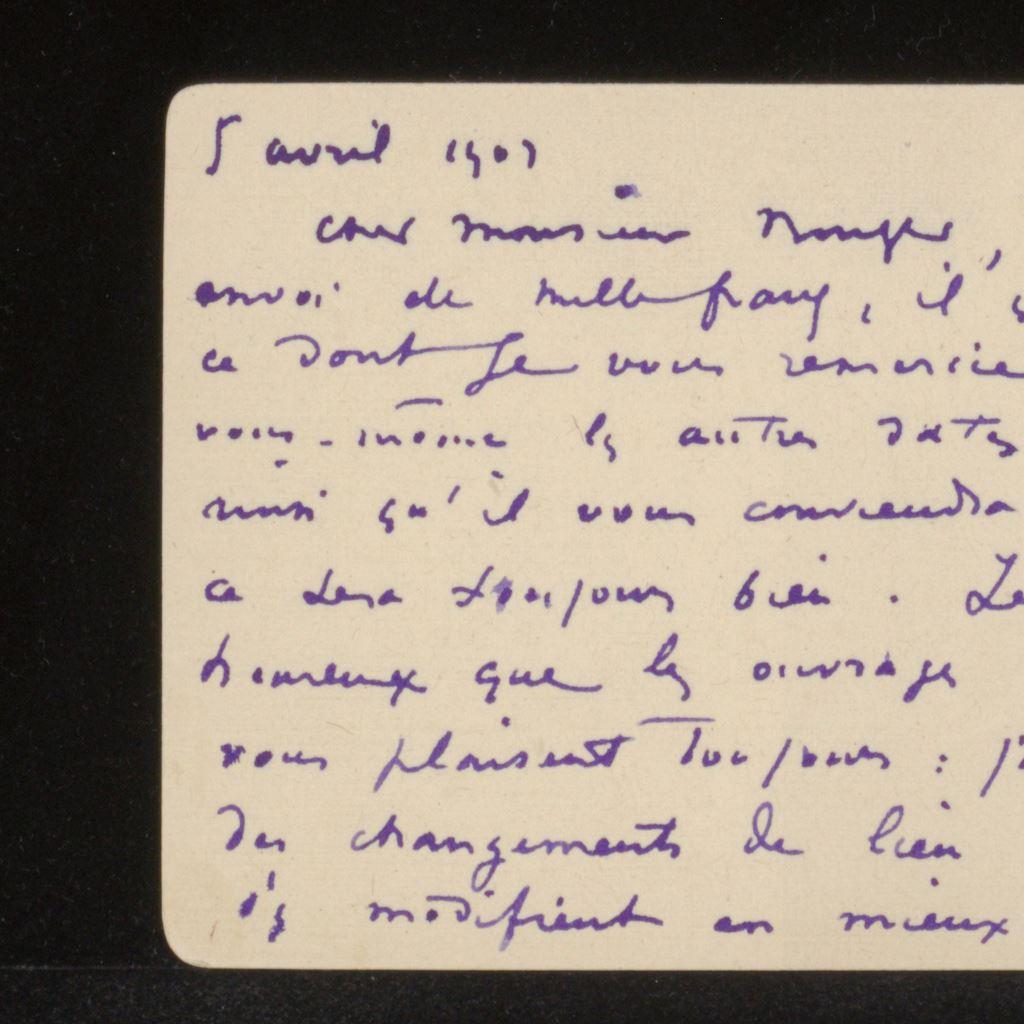 5 avril 1903
cher monsieur Rouger,
envoi de mille francs, il
ce dont je vous remercie
vous-même les autres dates
ainsi qu'il vous conviendra
ce sera toujours bien. Je
heureux que les ouvrages
vous plaisent toujours :
des changements de lieu
ils modifient en mieux